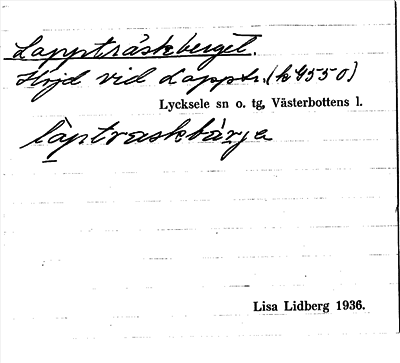 Lappträskberget.
Höjd vid Lapptr. (k 4550)
Lycksele sn o. tg, Västerbottens l.
làptraskbàrja
Lisa Lidberg 1936.